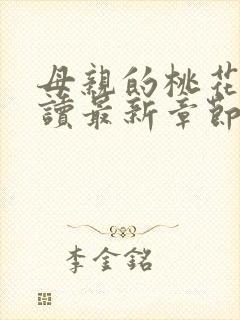 母親的桃花
讀最新章節
李金銘